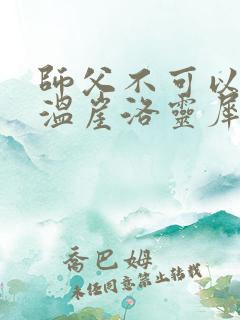 師父不可以
溫崖洛靈犀
喬巴姆
未經同意禁止轉載